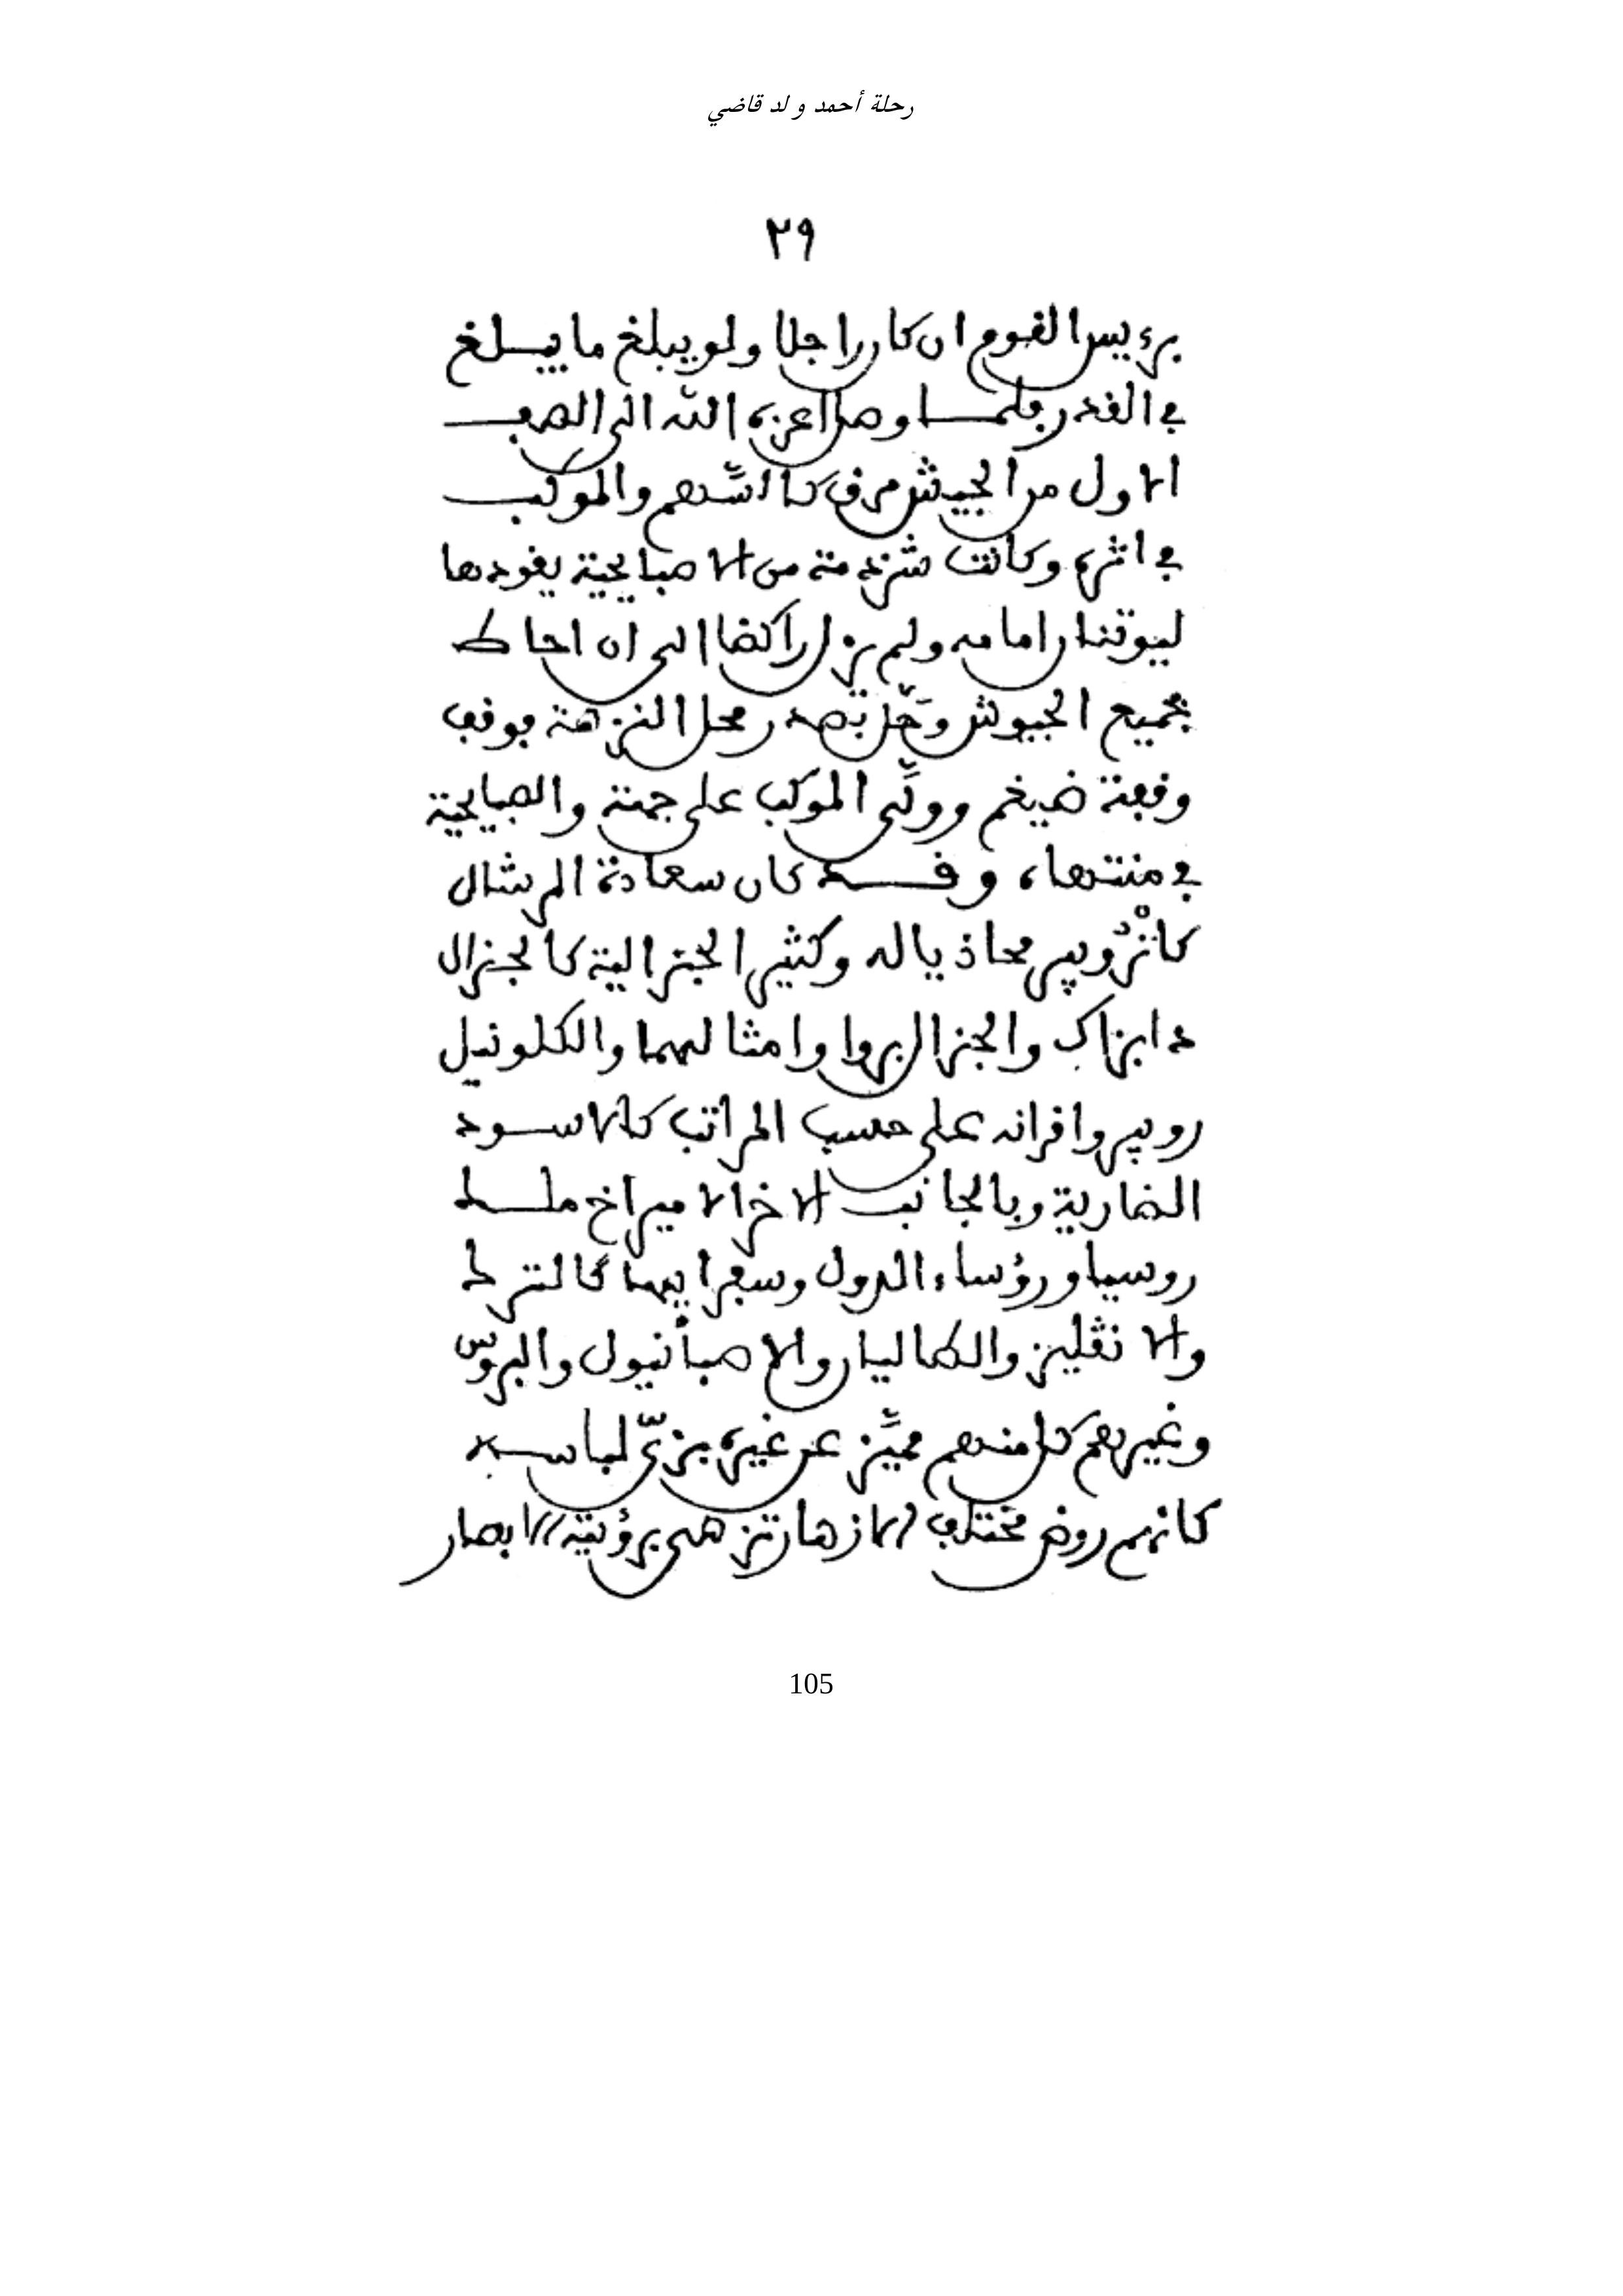 رحلة أحمد و لد قاضي
٢٩
برءيس القوم ان كان راجلا ولو يبلغ ما يبلغ
في القدر فلما وصل اعزه الله الى الصف
الاول من الجيش مرق كالسهم والموكب
في اثره وكانت شرذمة من الاصبايحية يقودها
ليوتنان امامه ولم يزل راكضا الى ان احاط
بجميع الجيوش وحل بصدر محل النزهة فوقف
وقفة ضيغم وولى الموكب على جهة والصبايحية
في منتهاه وقد كان سعادة المرشال
كانروبير محاذيا له وكثير الجنرالية كالجنرال
دابزاك والجنرال بروا وامثالهما والكلونيل
روبير واقرانه على حسب المراتب كالاسود
الضارية وبالجانب الاخر الامير اخ ملط
روسيا ورؤساء الدول وسفرايهما كالترك
والانڨليز والطاليان والاصبانيول والبروس
وغيرهم كل منهم مميز عن غيره بزي لباسه
كانهم روض مختلف الازهار تزهى برؤيته الابصار
105